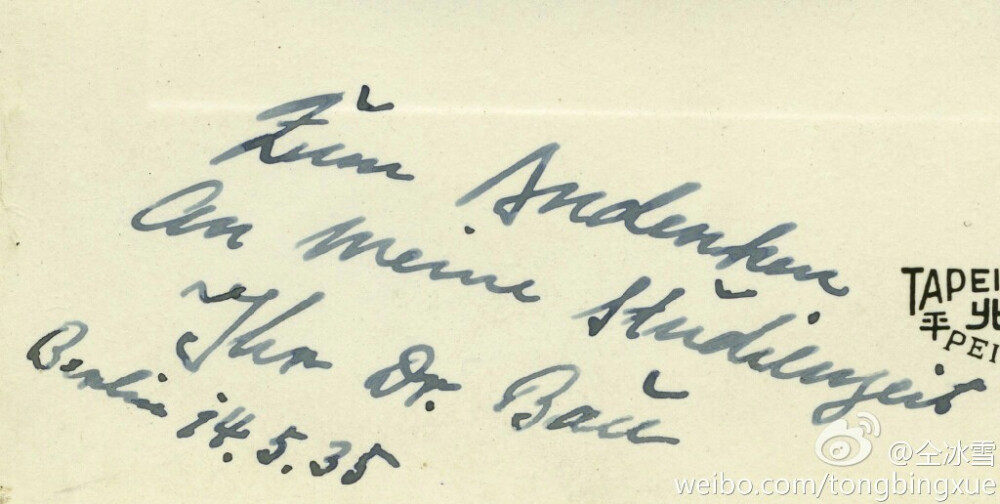 Zum Andenken
an meine Studienzeit
Ihr Dr. Bau
Berlin 14.5.35
TAPEI
平
PEI
@仝冰雪
weibo.com/tongbingxue